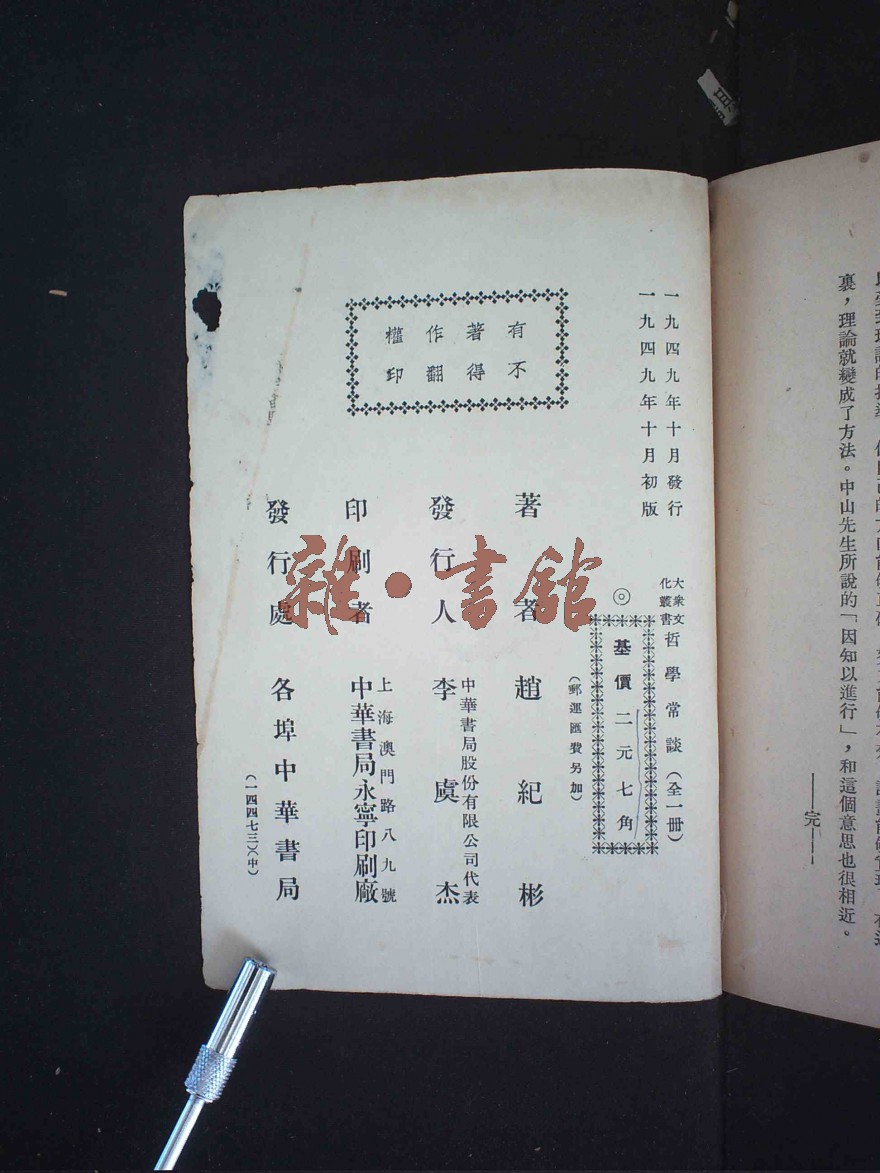 裏，理論就變成了方法。中山先生所說的「因知以進行」，和這個意思也很相近。
——完——
一九四九年十月發行
一九四九年十月初版
大衆文化叢書 哲學常談（全一冊）
◎基價二元七角
（郵運匯費另加）
有著作權
不得翻印
著者 趙紀彬
發行人 李虞杰
中華書局股份有限公司代表
印刷者 中華書局永寧印刷廠
上海澳門路八九號
發行處 各埠中華書局
（一四四七三）（中）
雜·書館